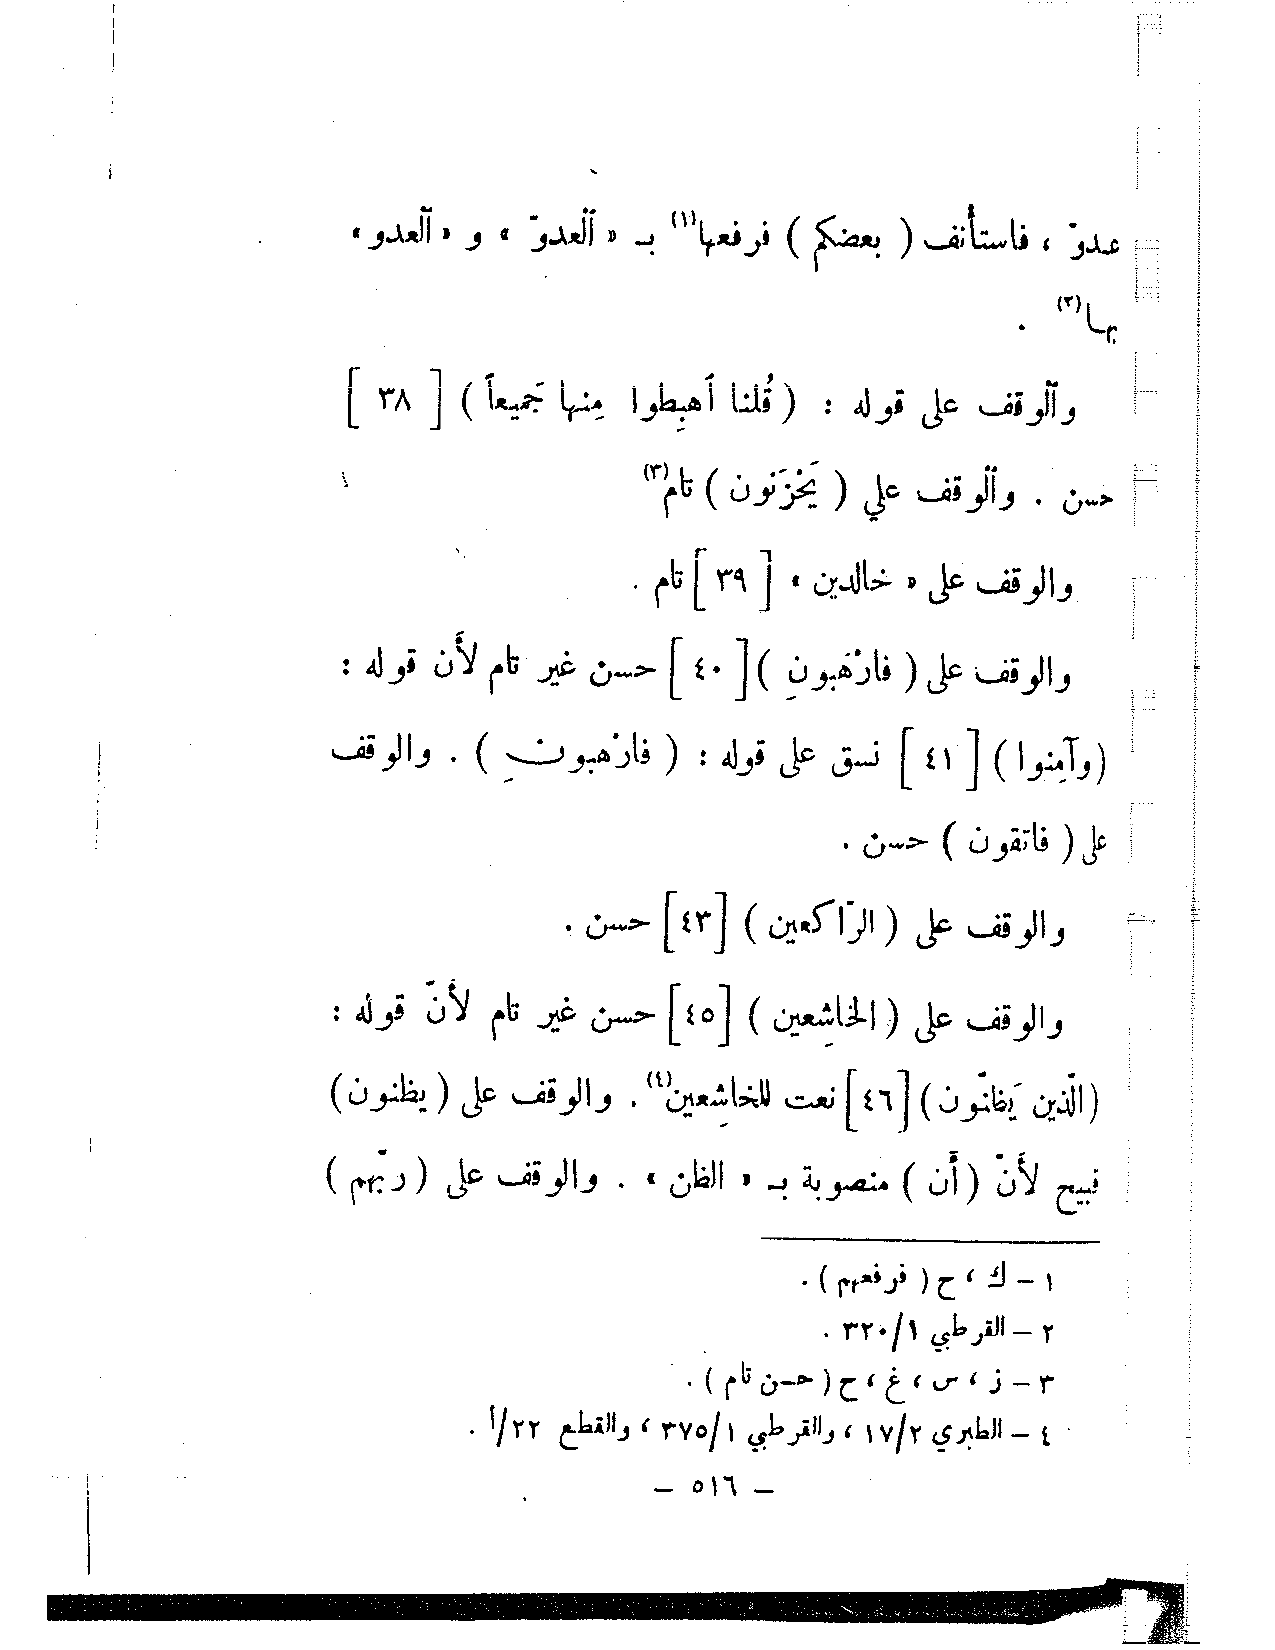 عدوّ ، فاستأنف ( بعضكم ) فرفعها(١) بـ « ٱلعدوّ » و « ٱلعدو »
بها(٢) .
وٱلوقف على قوله : ( قُلنا ٱهبِطوا مِنها جَميعاً ) [ ٣٨ ]
حسن . وٱلوقف علي ( يَحْزَنون ) تام(٣)
والوقف على « خالدين » [ ٣٩ ] تام .
والوقف على ( فارْهبونِ ) [ ٤٠ ] حسن غير تام لأَن قوله :
(وآمِنوا ) [ ٤١ ] نسق على قوله : ( فارْهبونِ ) . والوقف
على ( فاتقون ) حسن .
والوقف على ( الرّاكعين ) [٤٣] حسن .
والوقف على ( الخاشِعين ) [٤٥] حسن غير تام لأَنّ قوله :
(الّذين يَظنّون ) [٤٦] نعت للخاشِعين(٤) . والوقف على ( يظنون)
قبيح لأَنّ ( أَن ) منصوبة بـ « الظن » . والوقف على ( ربّهم )
١ – ك ، ح ( فرفعهم ) .
٢ – القرطبي ٣٢٠/١ .
٣ – ز ، س ، غ ، ح ( حسن تام ) .
٤ – الطبري ١٧/٢ ، والقرطبي ٣٧٥/١ ، والقطع ٢٢/أ .
– ٥١٦ –